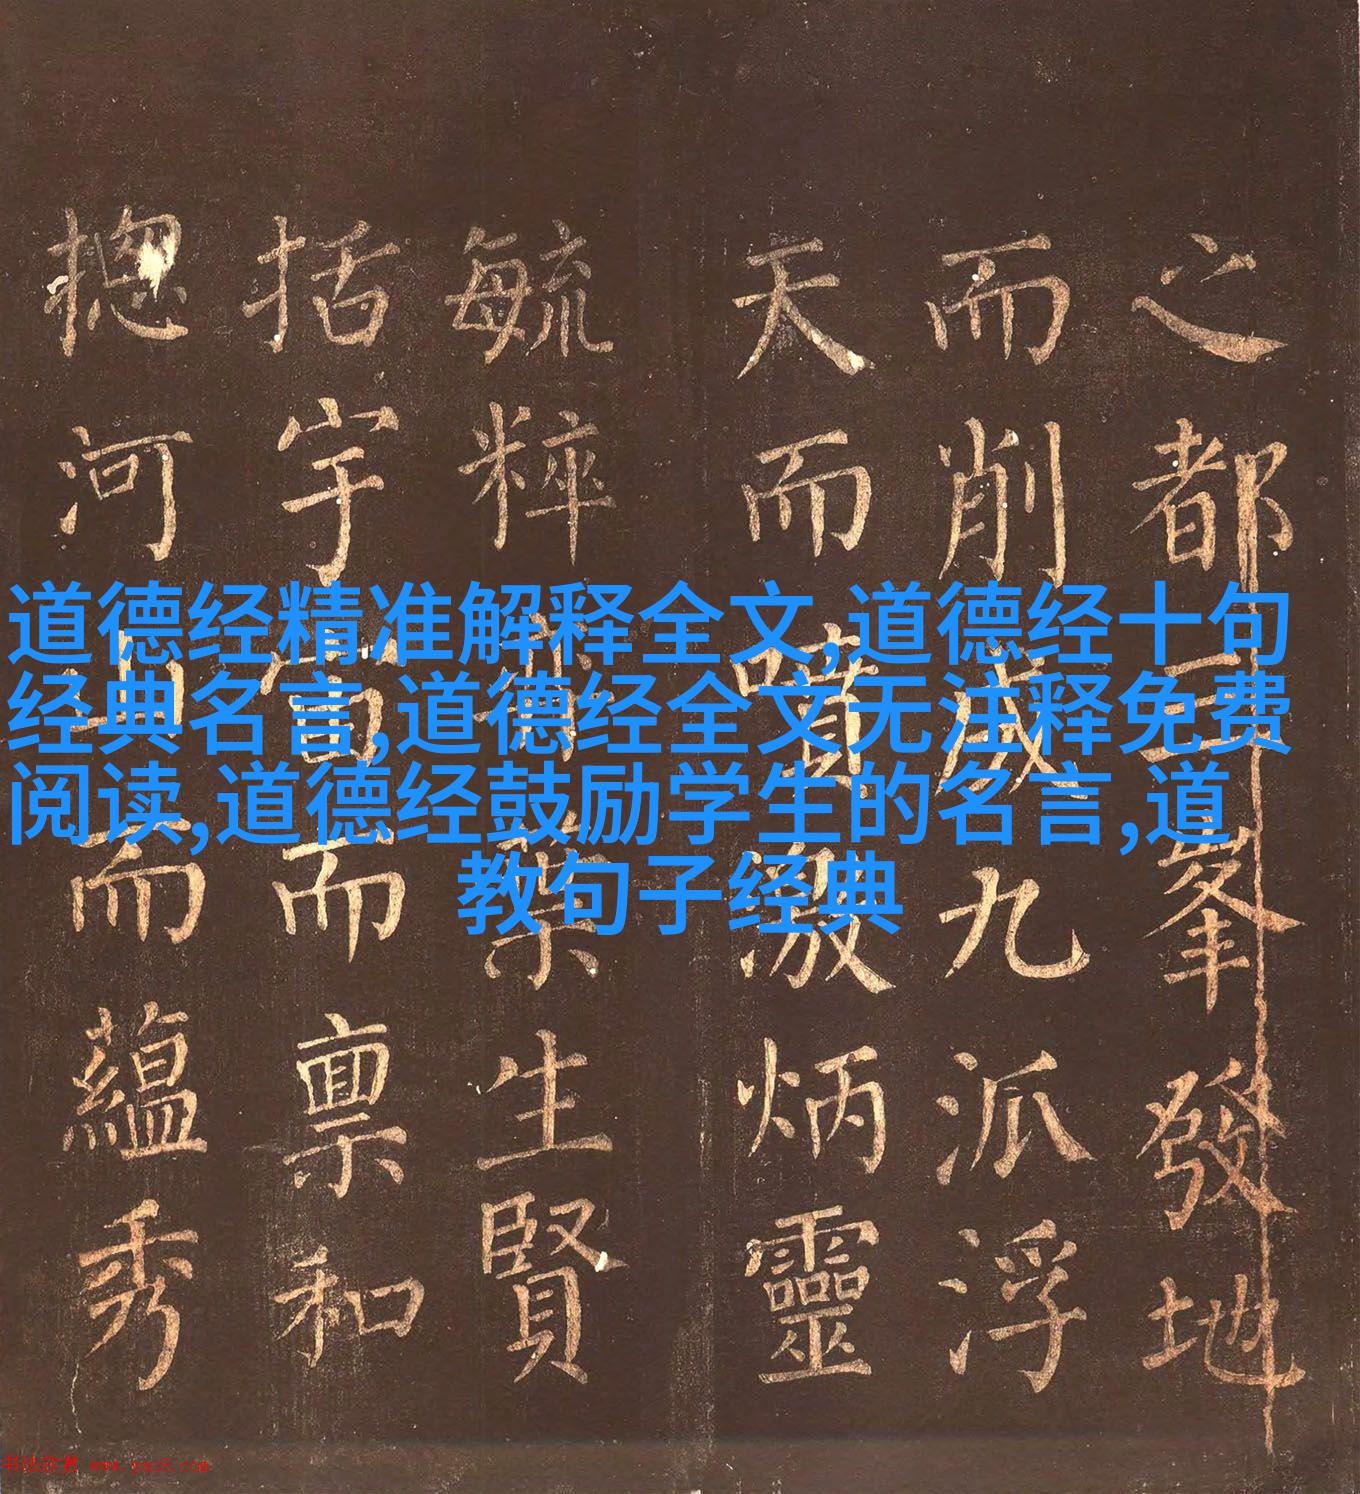 之都三峯發地
而削成九派浮
天而噴激炳靈
毓粹生賢
括宇宙而禀和
揔河山而藴秀
道德经精准解释全文,道德经十句
经典名言,道德经全文无注释免费
阅读,道德经鼓励学生的名言,道
教句子经典
书法欣赏 www.yac8.com